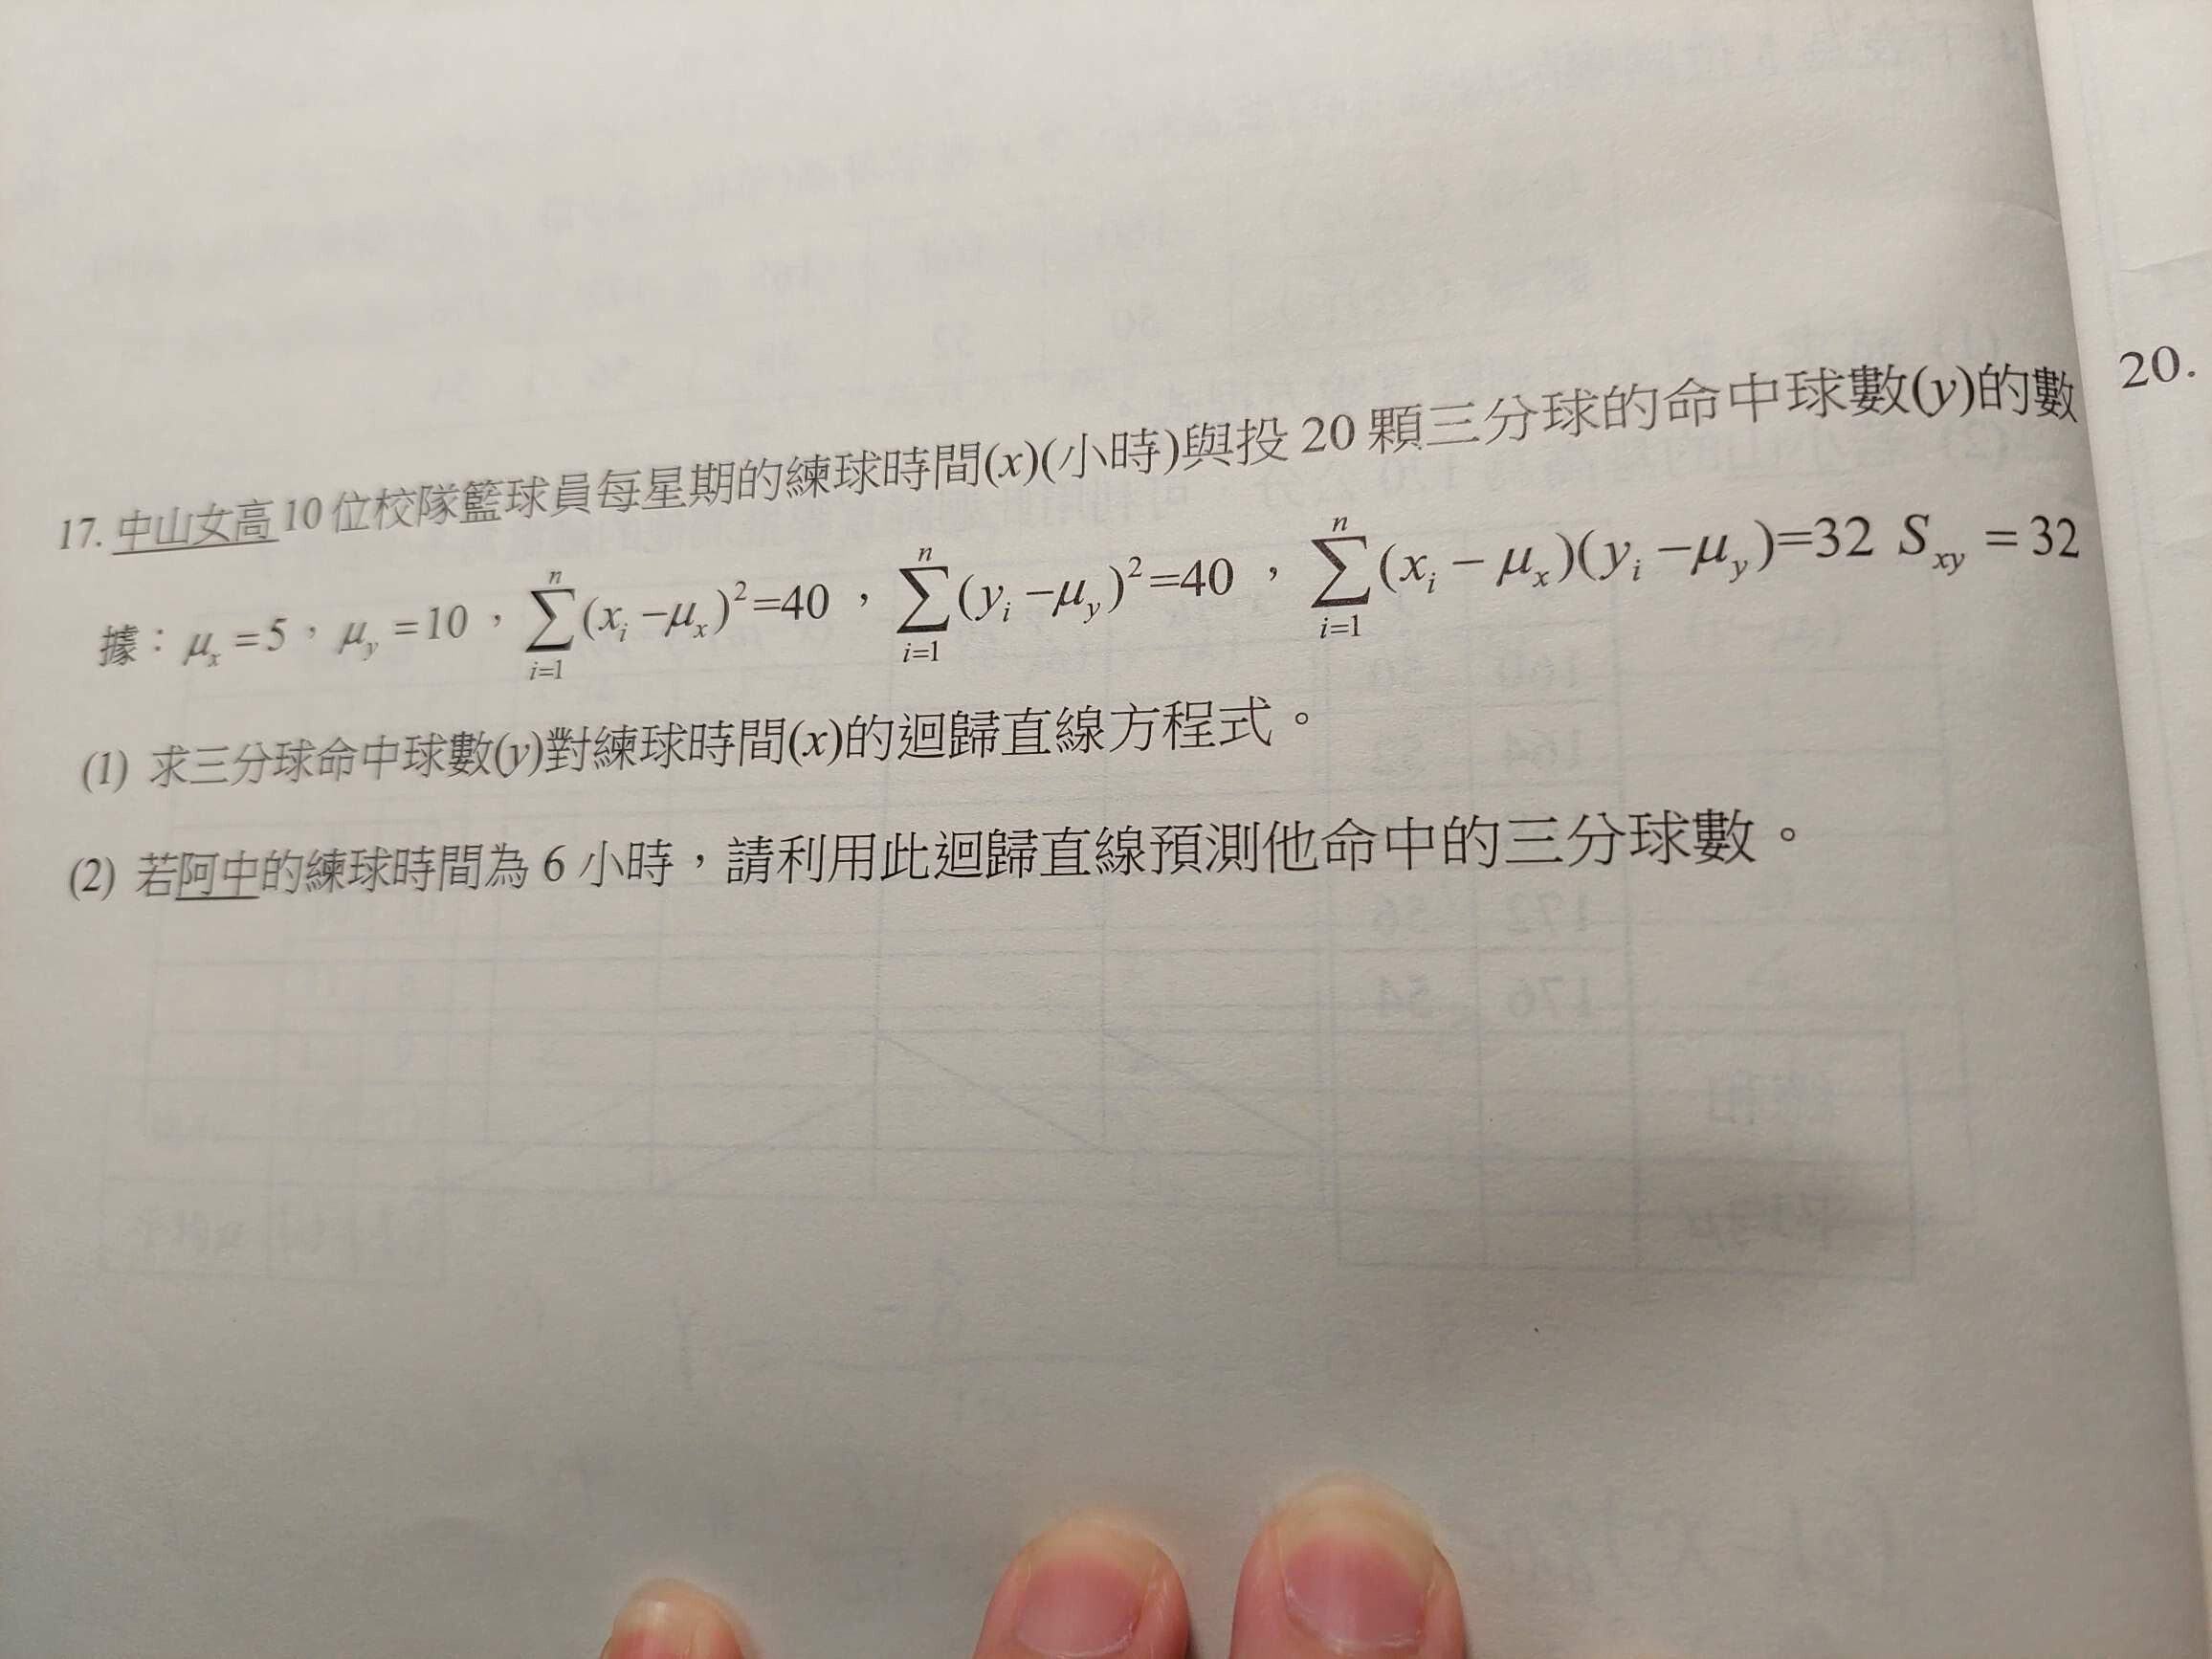 17. 中山女高10位校隊籃球員每星期的練球時間(x)(小時)與投20顆三分球的命中球數(y)的數
據：μₓ=5，μᵧ=10，∑ⁿᵢ₌₁(xᵢ−μₓ)²=40，∑ⁿᵢ₌₁(yᵢ−μᵧ)²=40，∑ⁿᵢ₌₁(xᵢ−μₓ)(yᵢ−μᵧ)=32 Sₓᵧ=32
(1) 求三分球命中球數(y)對練球時間(x)的迴歸直線方程式。
(2) 若阿中的練球時間為6小時，請利用此迴歸直線預測他命中的三分球數。
20.